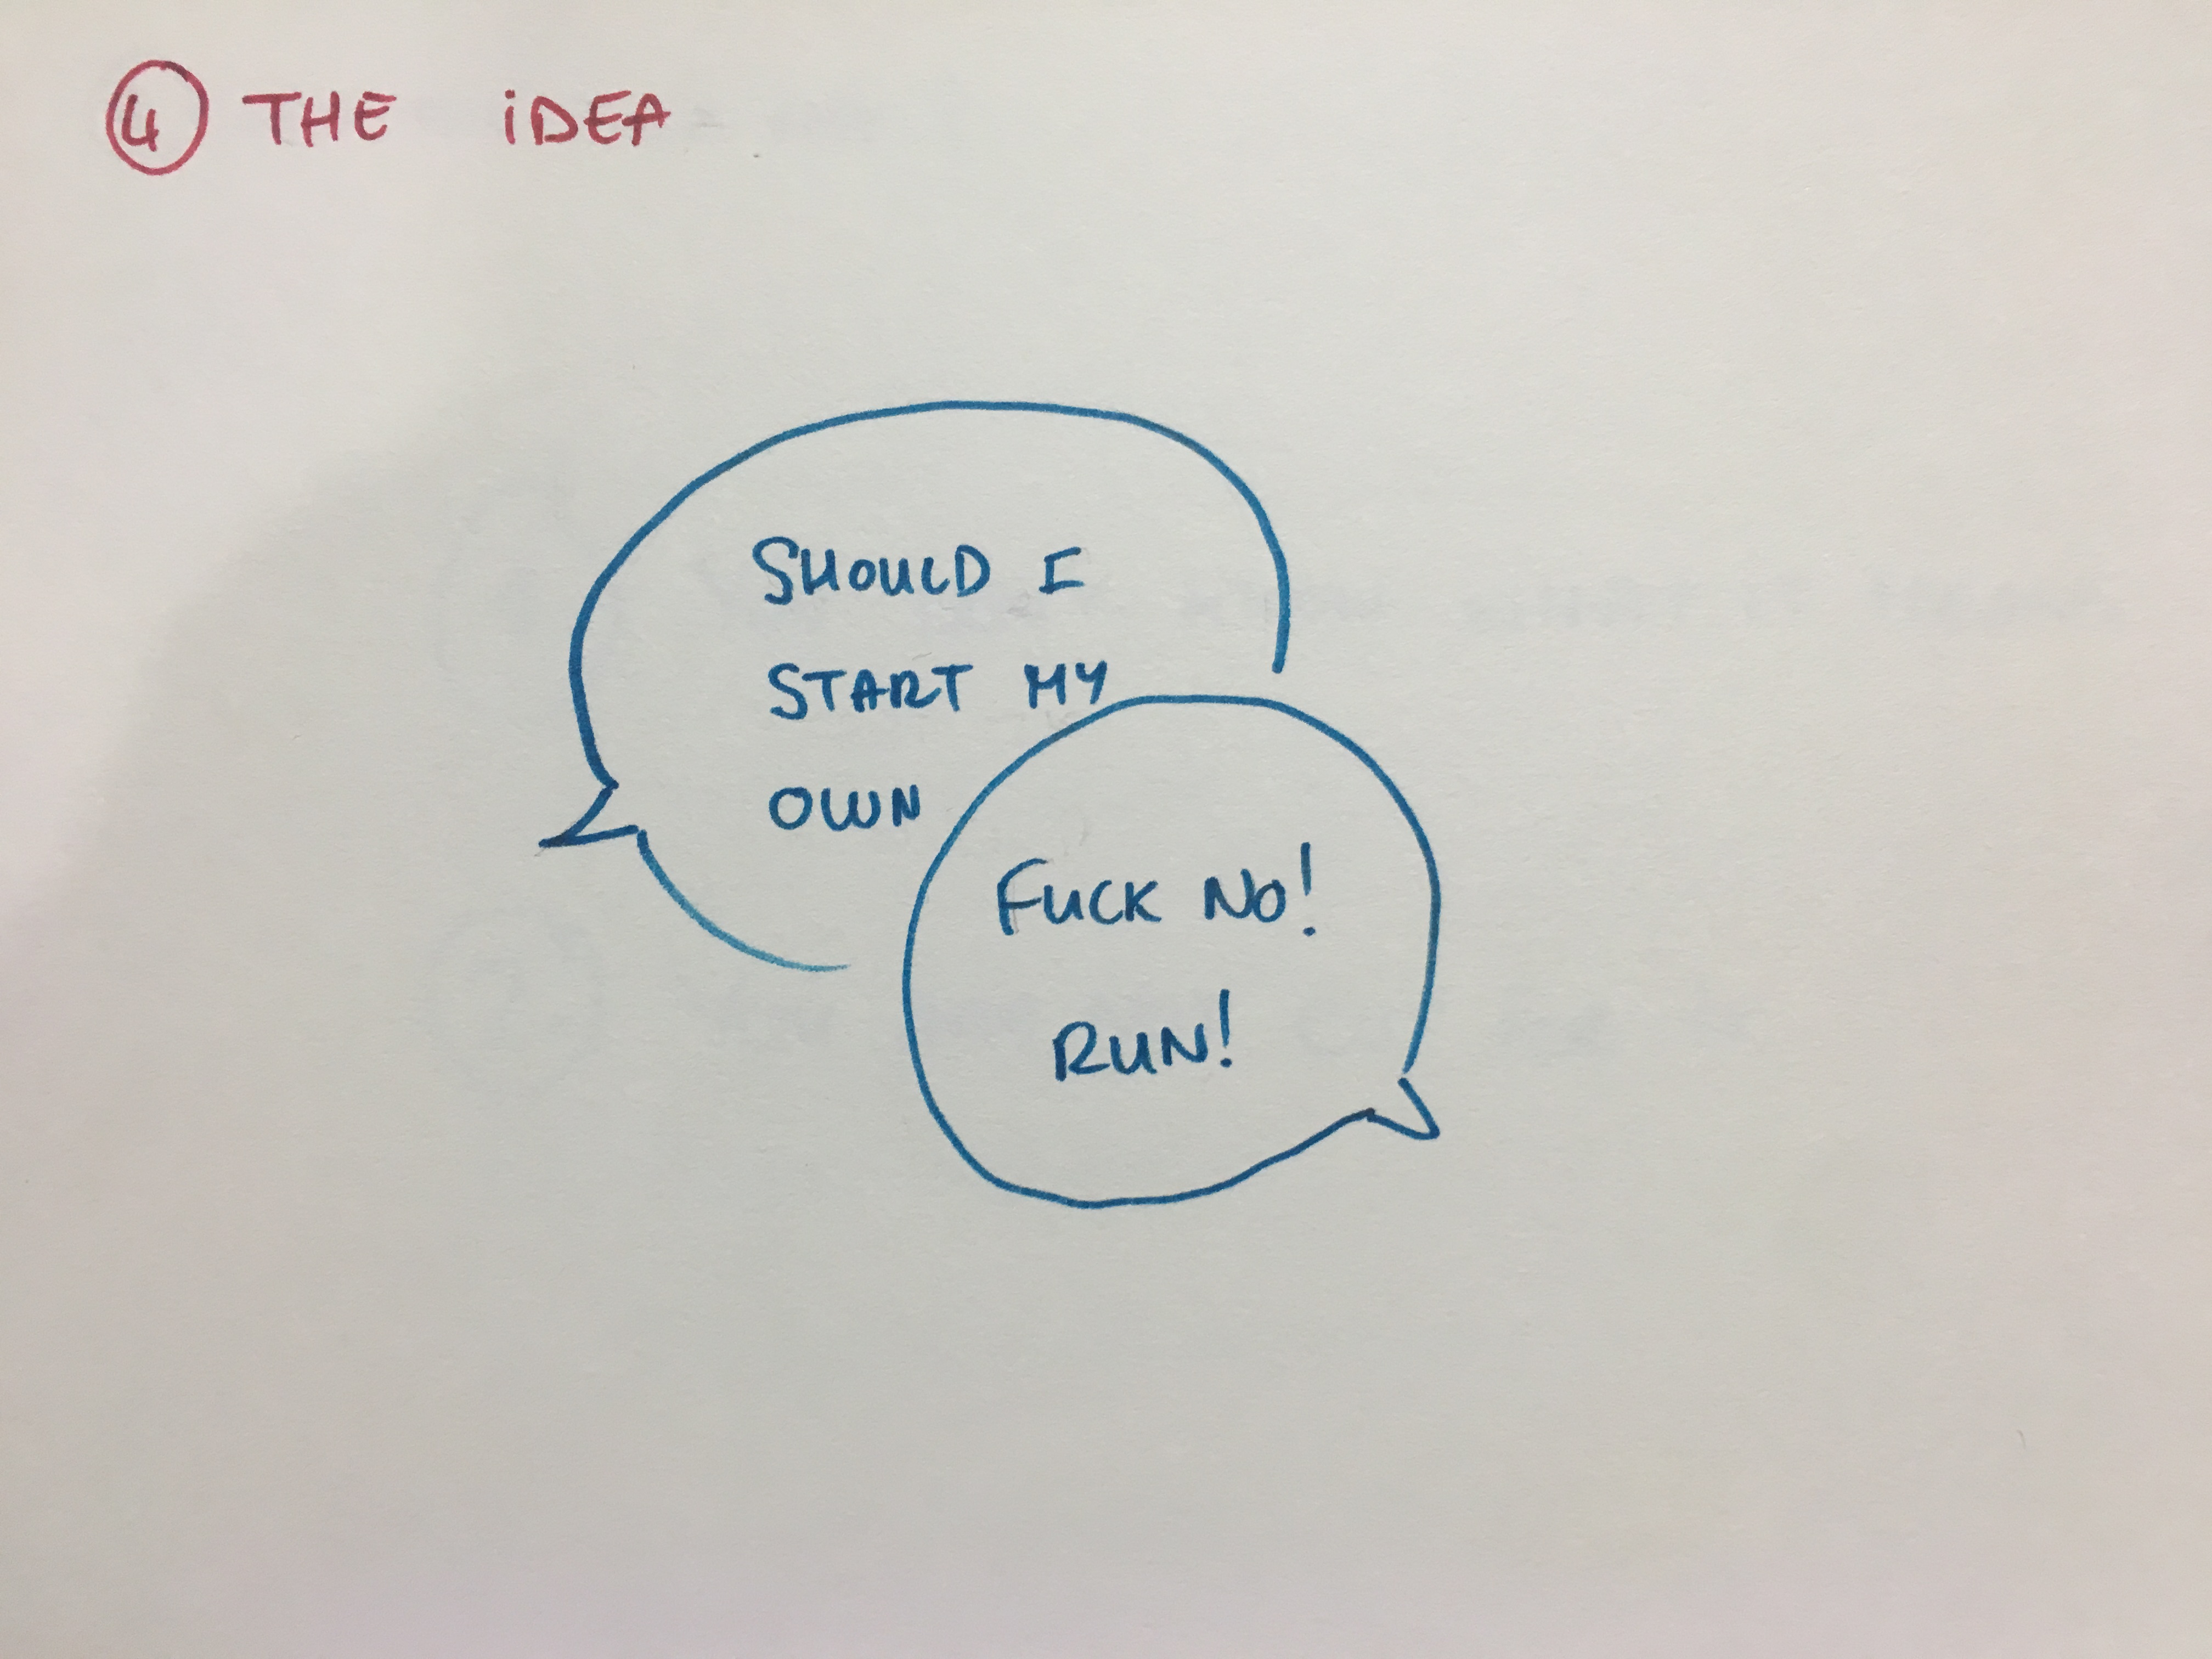 4 THE iDEA
SHOULD I
START MY
OWN
FUCK NO!
RUN!